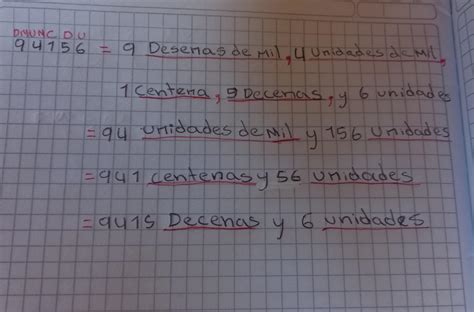 DMUMC D U
94156 = 9 Desenas de Mil, 4 unidades de Mil,
1 Centena, 9 Decenas, y 6 unidades
= 94 unidades de mil y 156 unidades
= 941 centenas y 56 unidades
= 9415 Decenas y 6 unidades